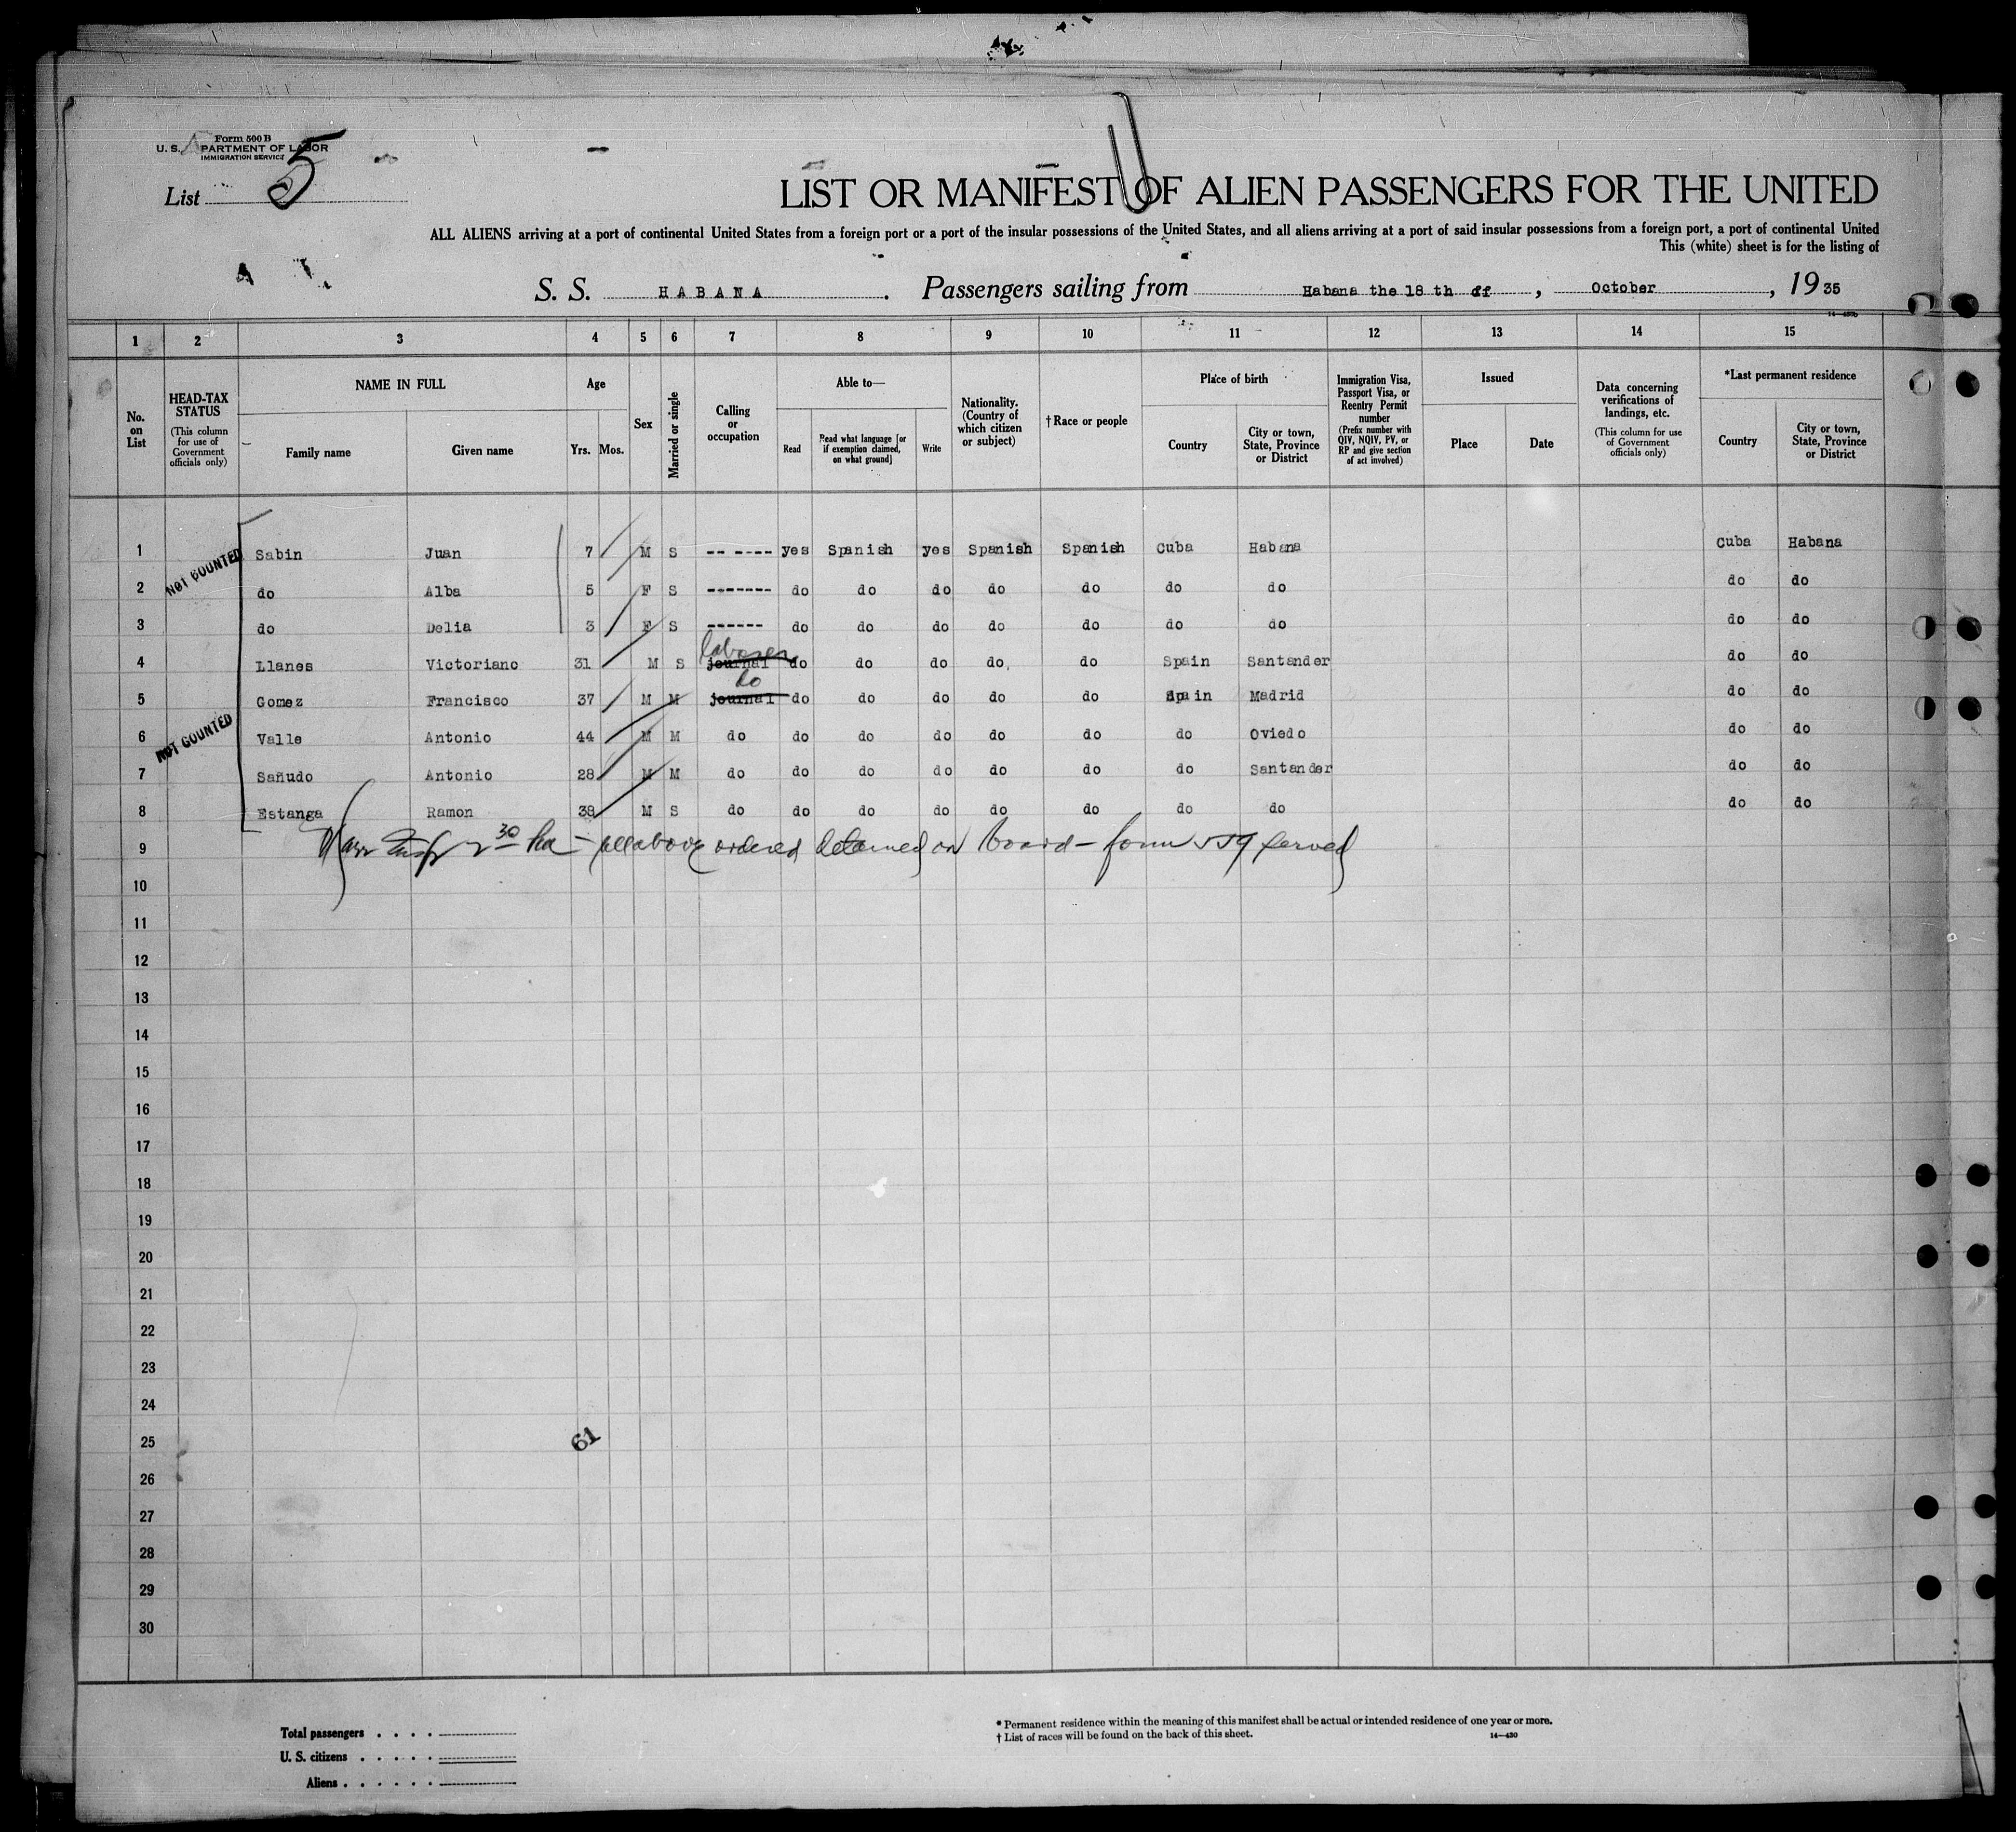 Form 500 B
U. S. DEPARTMENT OF LABOR
IMMIGRATION SERVICE
List 5
LIST OR MANIFEST OF ALIEN PASSENGERS FOR THE UNITED
ALL ALIENS arriving at a port of continental United States from a foreign port or a port of the insular possessions of the United States, and all aliens arriving at a port of said insular possessions from a foreign port, a port of continental United
This (white) sheet is for the listing of
S. S. HABANA. Passengers sailing from Habana the 18 th of, October, 1935
1 2 3 4 5 6 7 8 9 10 11 12 13 14 15
No. on List
HEAD-TAX STATUS (This column for use of Government officials only)
NAME IN FULL
Family name Given name
Age
Yrs. Mos.
Sex
Married or single
Calling or occupation
Able to—
Read
Read what language [or if exemption claimed, on what ground]
Write
Nationality. (Country of which citizen or subject)
† Race or people
Place of birth
Country
City or town, State, Province or District
Immigration Visa, Passport Visa, or Reentry Permit number (Prefix number with QIV, NQIV, PV, or RP and give section of act involved)
Issued
Place Date
Data concerning verifications of landings, etc. (This column for use of Government officials only)
*Last permanent residence
Country
City or town, State, Province or District
1 Sabin Juan 7 M S -- ---- yes Spanish yes Spanish Spanish Cuba Habana Cuba Habana
NOT COUNTED
2 do Alba 5 F S ------- do do do do do do do do do
3 do Delia 3 F S ------ do do do do do do do do do
laborer
4 Llanes Victoriano 31 M S journal do do do do do Spain Santander do do
do
5 Gomez Francisco 37 M M journal do do do do do Spain Madrid do do
NOT COUNTED
6 Valle Antonio 44 M M do do do do do do do Oviedo do do
7 Sañudo Antonio 28 M M do do do do do do do Santander do do
8 Estanga Ramon 38 M S do do do do do do do do do do
9 30 all above ordered detained on board - form 559 served
10
11
12
13
14
15
16
17
18
19
20
21
22
23
24
25 61
26
27
28
29
30
Total passengers . . . .
U. S. citizens . . . . .
Aliens . . . . . .
* Permanent residence within the meaning of this manifest shall be actual or intended residence of one year or more.
† List of races will be found on the back of this sheet.
14—430